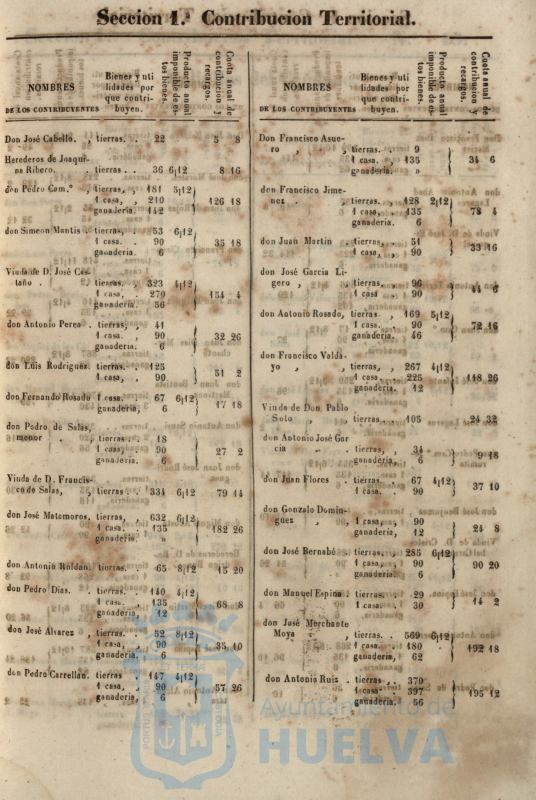 Seccion 1.ª Contribucion Territorial.
NOMBRES
DE LOS CONTRIBUYENTES
Bienes y uti
lidades por
que contri-
buyen.
Producto anual
imponible de es-
tos bienes.
Cuota anual de
contribucion y
recargos.
Don José Cabello. , tierras. 22 5 8
Herederos de Joaqui-
na Ribero. . tierras. . 36 6|12 8 16
don Pedro Cam.º , tierras, , 181 5|12
1 casa, , 210 126 18
ganaderia. 142
don Simeon Mantis . tierras, , 53 6|12
1 casa. . 90 35 18
ganaderia. 6
Viuda de D. José Cas-
taño . , tierras. . 323 4|12
1 casa, , 270 154 4
ganaderia. 56
don Antonio Perea . tierras, , 41
1 casa. . 90 32 26
ganaderia. 6
don Luis Rodriguez. tierras. . 125
1 casa, , 90 51 2
don Fernando Rosado 1 casa. 67 6|12
ganaderia, 6 17 18
don Pedro de Salas,
menor . , tierras . . 18
1 casa. . 90 27 2
ganaderia. 6
Viuda de D. Francis-
co de Salas, , tierras. . 334 6|12 79 14
don José Matamoros, tierras, , 632 6|12
1 casa. . 135 182 26
ganaderia. »
don Antonio Roldan, tierras. . 65 8|12 15 20
don Pedro Dias. . tierras. . 140 4|12
1 casa. . 135 68 8
ganaderia, 12
don José Alvarez , tierras. . 52 8|12
1 casa, , 90 35 10
ganaderia. 6
don Pedro Carrellan. tierras 147 4|12
1 casa, , 90 57 26
ganaderia, 6
NOMBRES
DE LOS CONTRIBUYENTES
Bienes y uti
lidades por
que contri-
buyen.
Producto anual
imponible de es-
tos bienes.
Cuota anual de
contribucion y
recargos.
Don Francisco Asue-
ro , . , tierras. . 9
1 casa. , 135 34 6
ganaderia. »
don Francisco Jime-
nez . . tierras. . 128 2|12
1 casa, , 135 78 4
ganaderia. 6
don Juan Martin . tierras. . 51
1 casa, , 90 33 16
don José Garcia Li-
gero , , tierras. . 96
1 casa . 90 44 6
don Antonio Rosado, tierras. . 169 5|12
1 casa. . 90 72 16
ganaderia. 46
don Francisco Valda-
yo , , tierras, , 267 4|12
1 casa. . 225 118 26
ganaderia. 12
Viuda de Don Pablo
Soto , , tierras. . 105 24 32
don Antonio José Gar
cia . , tierras, , 34
ganaderia, 6 9 18
don Juan Flores . tierras. . 67 4|12
1 casa. . 90 37 10
don Gonzalo Domin-
guez , , 1 casa, , 90
ganaderia, 12 24 8
don José Bernabé . tierras. . 285 6|12
1 casa. . 90 90 20
ganaderia. 6
don Manuel Espina . tierras. . 29
1 casa . 30 14 2
don José Merchante
Moya , tierras. . 569 6|12
1 casa. . 180 192 18
ganaderia. 62
don Antonia Ruiz . tierras . . 370
1 casa. 397 195 12
ganaderia. 56
Ayuntamiento de
HUELVA